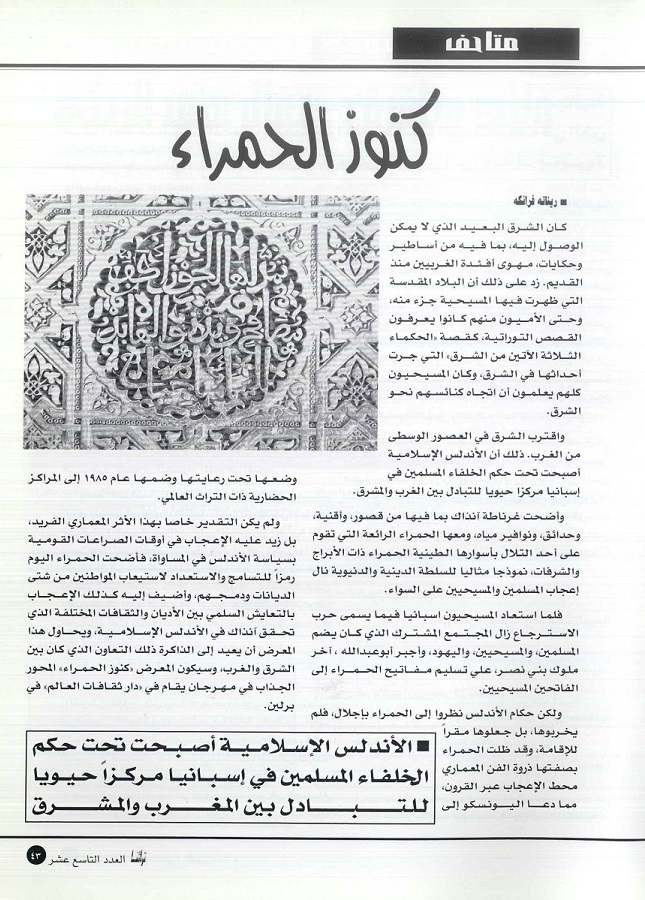 متاحف
كنوز الحمراء
■ ريناته فرانكه
كان الشرق البعيد الذي لا يمكن
الوصول إليه، بما فيه من أساطير
وحكايات، مهوى أفئدة الغربيين منذ
القديم. زد على ذلك أن البلاد المقدسة
التي ظهرت فيها المسيحية جزء منه،
وحتى الأميون منهم كانوا يعرفون
القصص التوراتية، كقصة «الحكماء
الثلاثة الآتين من الشرق» التي جرت
أحداثها في الشرق، وكان المسيحيون
كلهم يعلمون أن اتجاه كنائسهم نحو
الشرق.
واقترب الشرق في العصور الوسطى
من الغرب. ذلك أن الأندلس الإسلامية
أصبحت تحت حكم الخلفاء المسلمين في
إسبانيا مركزا حيويا للتبادل بين الغرب والمشرق.
وأضحت غرناطة آنذاك بما فيها من قصور، وأقنية،
وحدائق، ونوافير مياه، ومعها الحمراء الرائعة التي تقوم
على أحد التلال بأسوارها الطينية الحمراء ذات الأبراج
والشرفات، نموذجا مثاليا للسلطة الدينية والدنيوية نال
إعجاب المسلمين والمسيحيين على السواء.
فلما استعاد المسيحيون اسبانيا فيما يسمى حرب
الاسترجاع زال المجتمع المشترك الذي كان يضم
المسلمين، والمسيحيين، واليهود، وأجبر أبوعبدالله ، آخر
ملوك بني نصر، علي تسليم مفاتيح الحمراء إلى
الفاتحين المسيحيين.
ولكن حكام الأندلس نظروا إلى الحمراء بإجلال، فلم
يخربوها، بل جعلوها مقراً
للإقامة، وقد ظلت الحمراء
بصفتها ذروة الفن المعماري
محط الإعجاب عبر القرون،
مما دعا اليونسكو إلى
وضعها تحت رعايتها وضمها عام ١٩٨٥ إلى المراكز
الحضارية ذات التراث العالمي.
ولم يكن التقدير خاصا بهذا الأثر المعماري الفريد،
بل زيد عليه الإعجاب في أوقات الصراعات القومية
بسياسة الأندلس في المساواة، فأضحت الحمراء اليوم
رمزاً للتسامح والاستعداد لاستيعاب المواطنين من شتى
الديانات ودمجهم، وأضيف إليه كذلك الإعجاب
بالتعايش السلمي بين الأديان والثقافات المختلفة الذي
تحقق آنذاك في الأندلس الإسلامية، ويحاول هذا
المعرض أن يعيد إلى الذاكرة ذلك التعاون الذي كان بين
الشرق والغرب، وسيكون المعرض «كنوز الحمراء» المحور
الجذاب في مهرجان يقام في «دار ثقافات العالم» في
برلين.
■ الأندلس الإسلامية أصبحت تحت حكم
الخلفاء المسلمين في إسبانيا مركزاً حيويا
للتبادل بين المغرب والمشرق
العدد التاسع عشر ٤٣